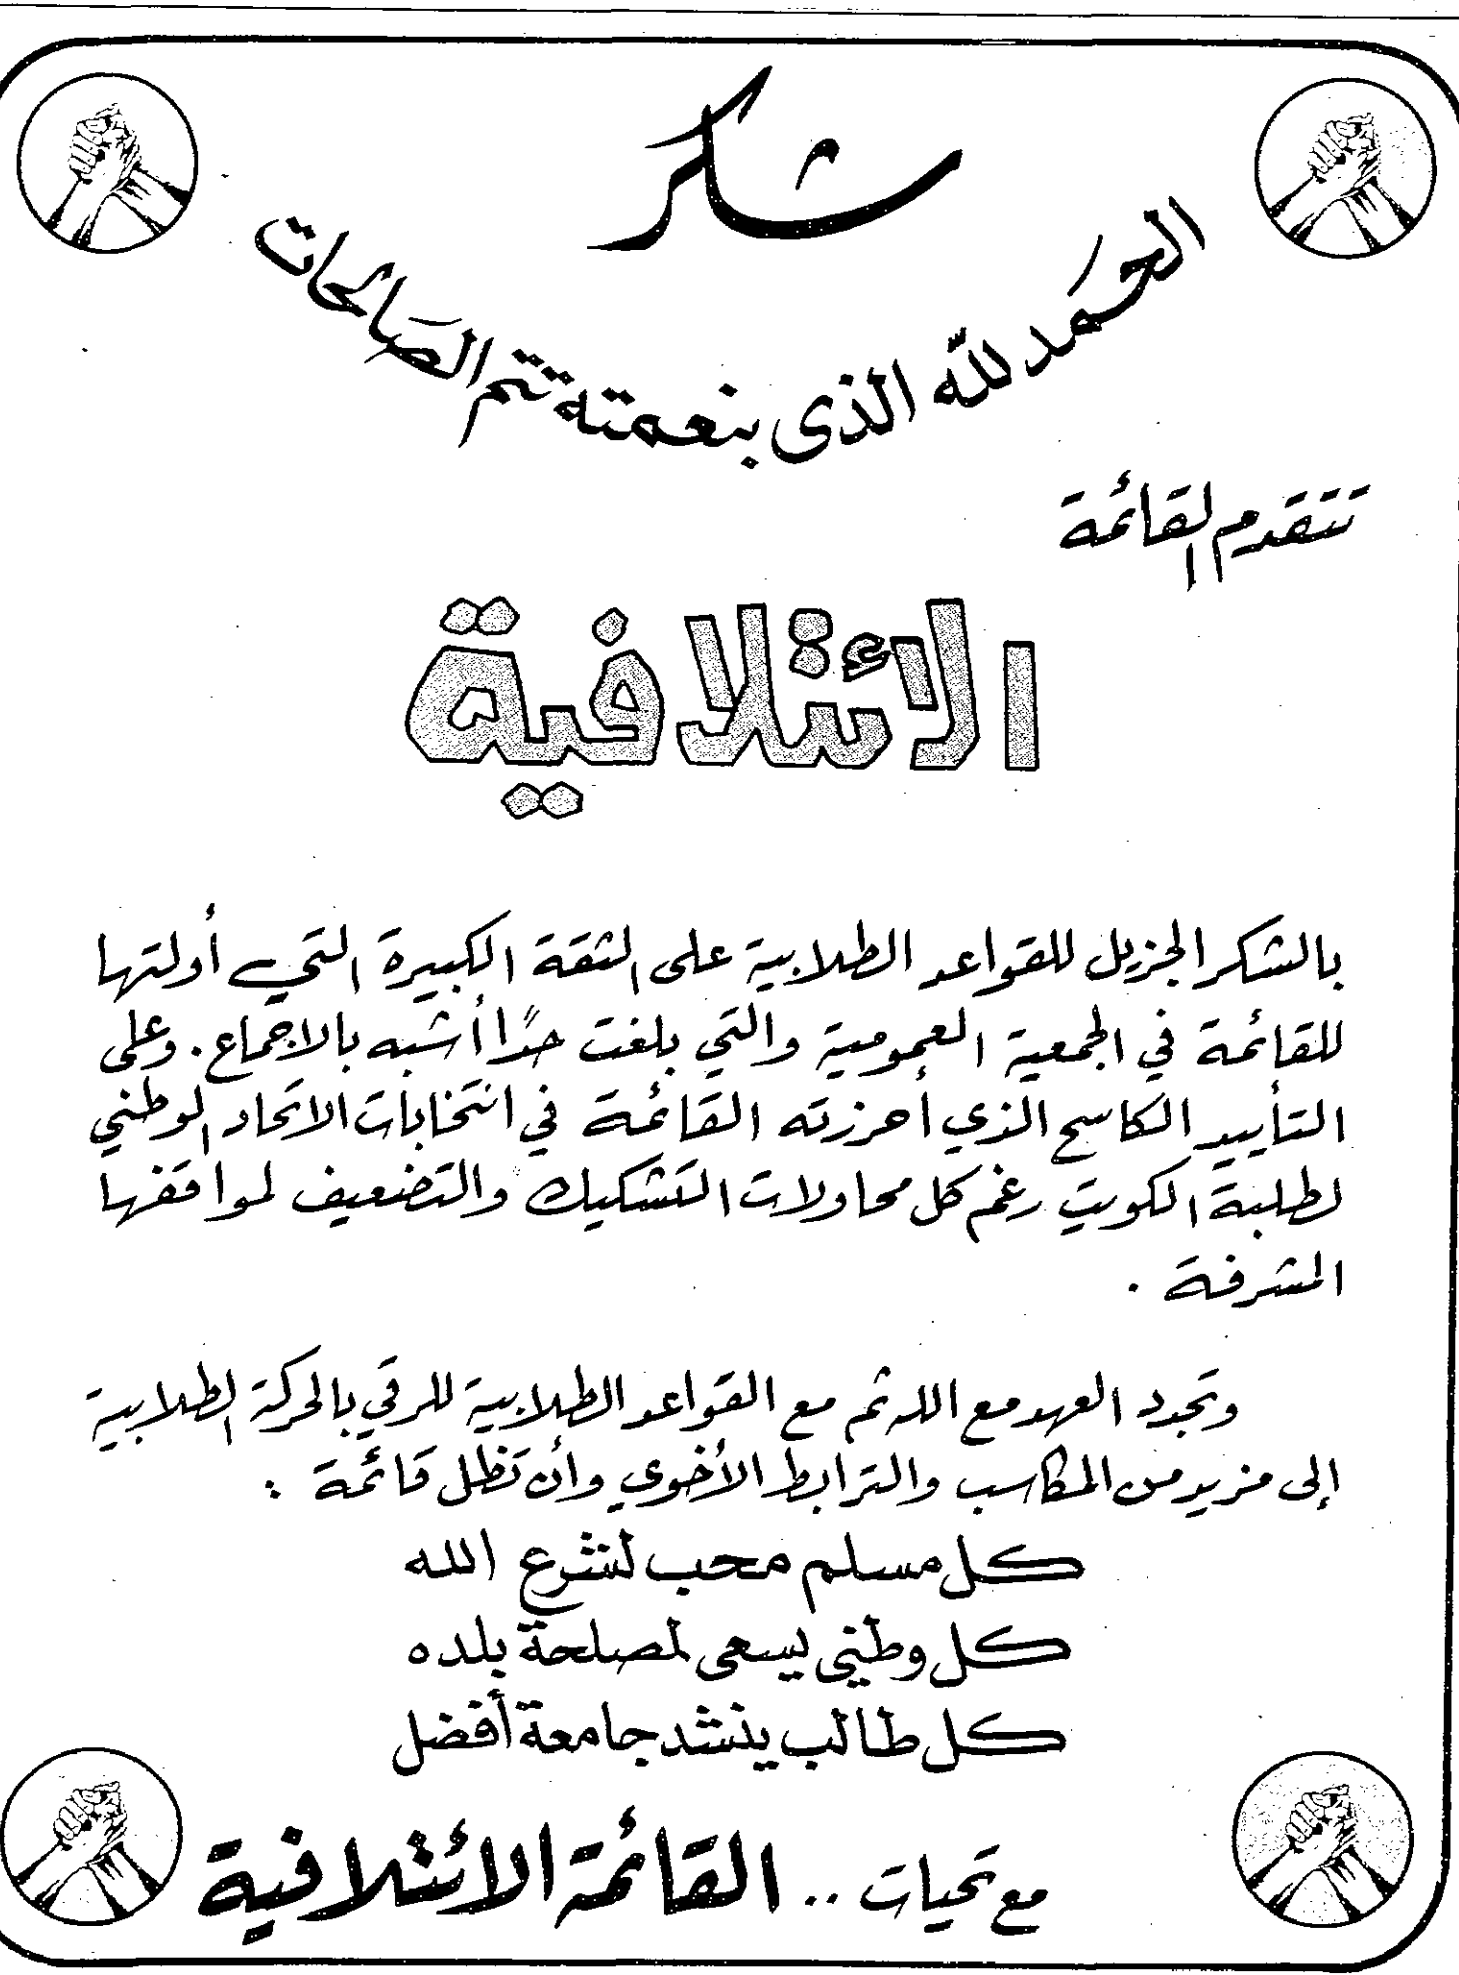 شكر
الحمد لله الذى بنعمته تتم الصالحات
تتقدم القائمة
الائتلافية
بالشكر الجزيل للقواعد الطلابية على الثقة الكبيرة التي أولتها
للقائمة في الجمعية العمومية والتي بلغت حدًا أشبه بالاجماع. وعلى
التأييد الكاسح الذي أحرزته القائمة في انتخابات الاتحاد الوطني
لطلبة الكويت رغم كل محاولات التشكيك والتضعيف لمواقفها
المشرفة .
وتجدد العهد مع الله ثم مع القواعد الطلابية للرقي بالحركة الطلابية
إلى مزيد من المكاسب والترابط الأخوي وأن تظل قائمة :
كل مسلم محب لشرع الله
كل وطني يسعى لمصلحة بلده
كل طالب ينشد جامعة أفضل
مع تحيات .. القائمة الائتلافية